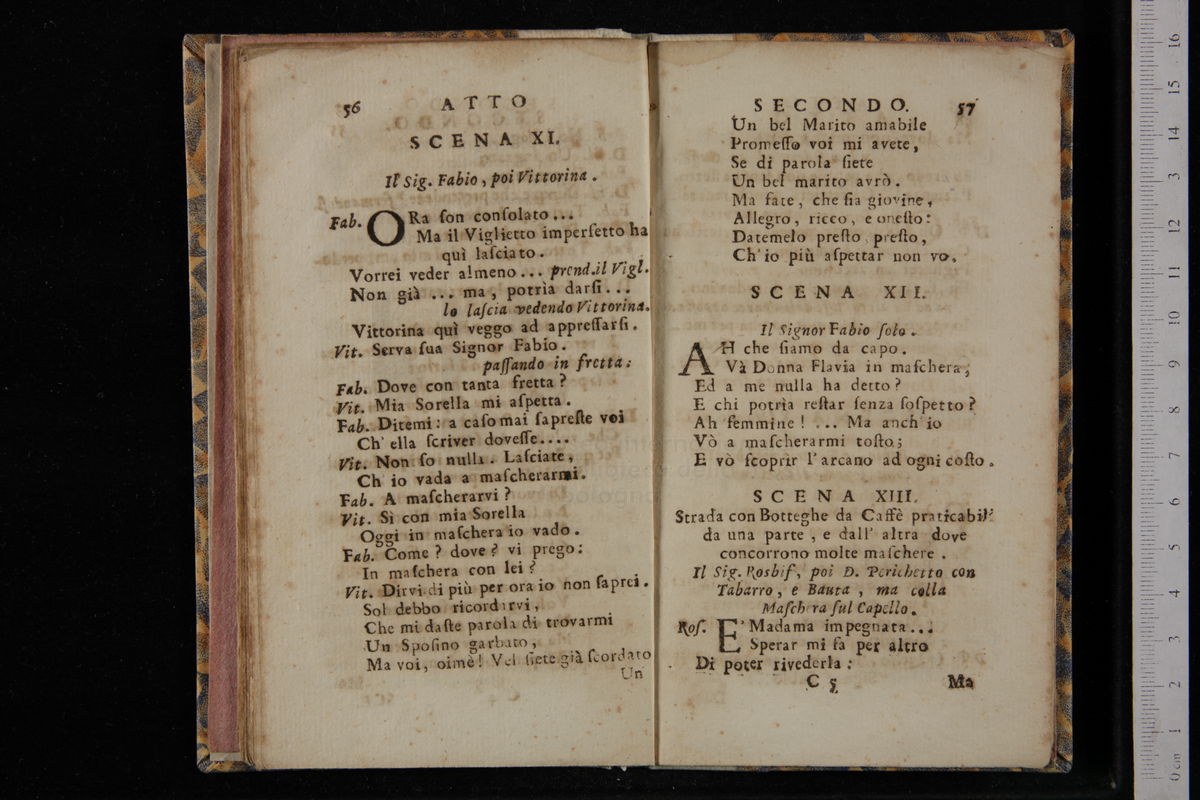 56
ATTO
SCENA XI.
Il Sig. Fabio, poi Vittorina.
Fab. ORa ſon conſolato...
Ma il Viglietto imperfetto ha
quì laſciato.
Vorrei veder almeno... prend.il Vigl.
Non già ... ma, potrìa darſi...
lo laſcia vedendo Vittorina.
Vittorina quì veggo ad appreſſarſi.
Vit. Serva ſua Signor Fabio.
paſſando in fretta:
Fab. Dove con tanta fretta?
Vit. Mia Sorella mi aſpetta.
Fab. Ditemi: a caſo mai ſapreſte voi
Ch' ella ſcriver doveſſe....
Vit. Non ſo nulla. Laſciate,
Ch io vada a maſcherarmi.
Fab. A maſcherarvi?
Vit. Sì con mia Sorella
Oggi in maſchera io vado.
Fab. Come? dove? vi prego:
In maſchera con lei?
Vit. Dirvi di più per ora io non ſaprei.
Sol debbo ricordarvi,
Che mi daſte parola di trovarmi
Un Spoſino garbato,
Ma voi, oimè! Vel ſiete già ſcordato
Un
SECONDO.
57
Un bel Marito amabile
Promeſſo voi mi avete,
Se di parola ſiete
Un bel marito avrò.
Ma fate, che ſia giovine,
Allegro, ricco, e oneſto:
Datemelo preſto preſto,
Ch' io più aſpettar non vo.
SCENA XII.
Il Signor Fabio ſolo.
AH che ſiamo da capo.
Và Donna Flavia in maſchera,
Ed a me nulla ha detto?
E chi potrìa reſtar ſenza ſoſpetto?
Ah femmine! ... Ma anch' io
Vò a maſcherarmi toſto;
E vò ſcoprir l' arcano ad ogni coſto.
SCENA XIII.
Strada con Botteghe da Caffè praticabili
da una parte, e dall' altra dove
concorrono molte maſchere.
Il Sig. Rosbif, poi D. Perichetto con
Tabarro, e Bauta, ma colla
Maſchera ſul Capello.
Roſ. E' Madama impegnata...
Sperar mi fa per altro
Di poter rivederla:
C 5
Ma